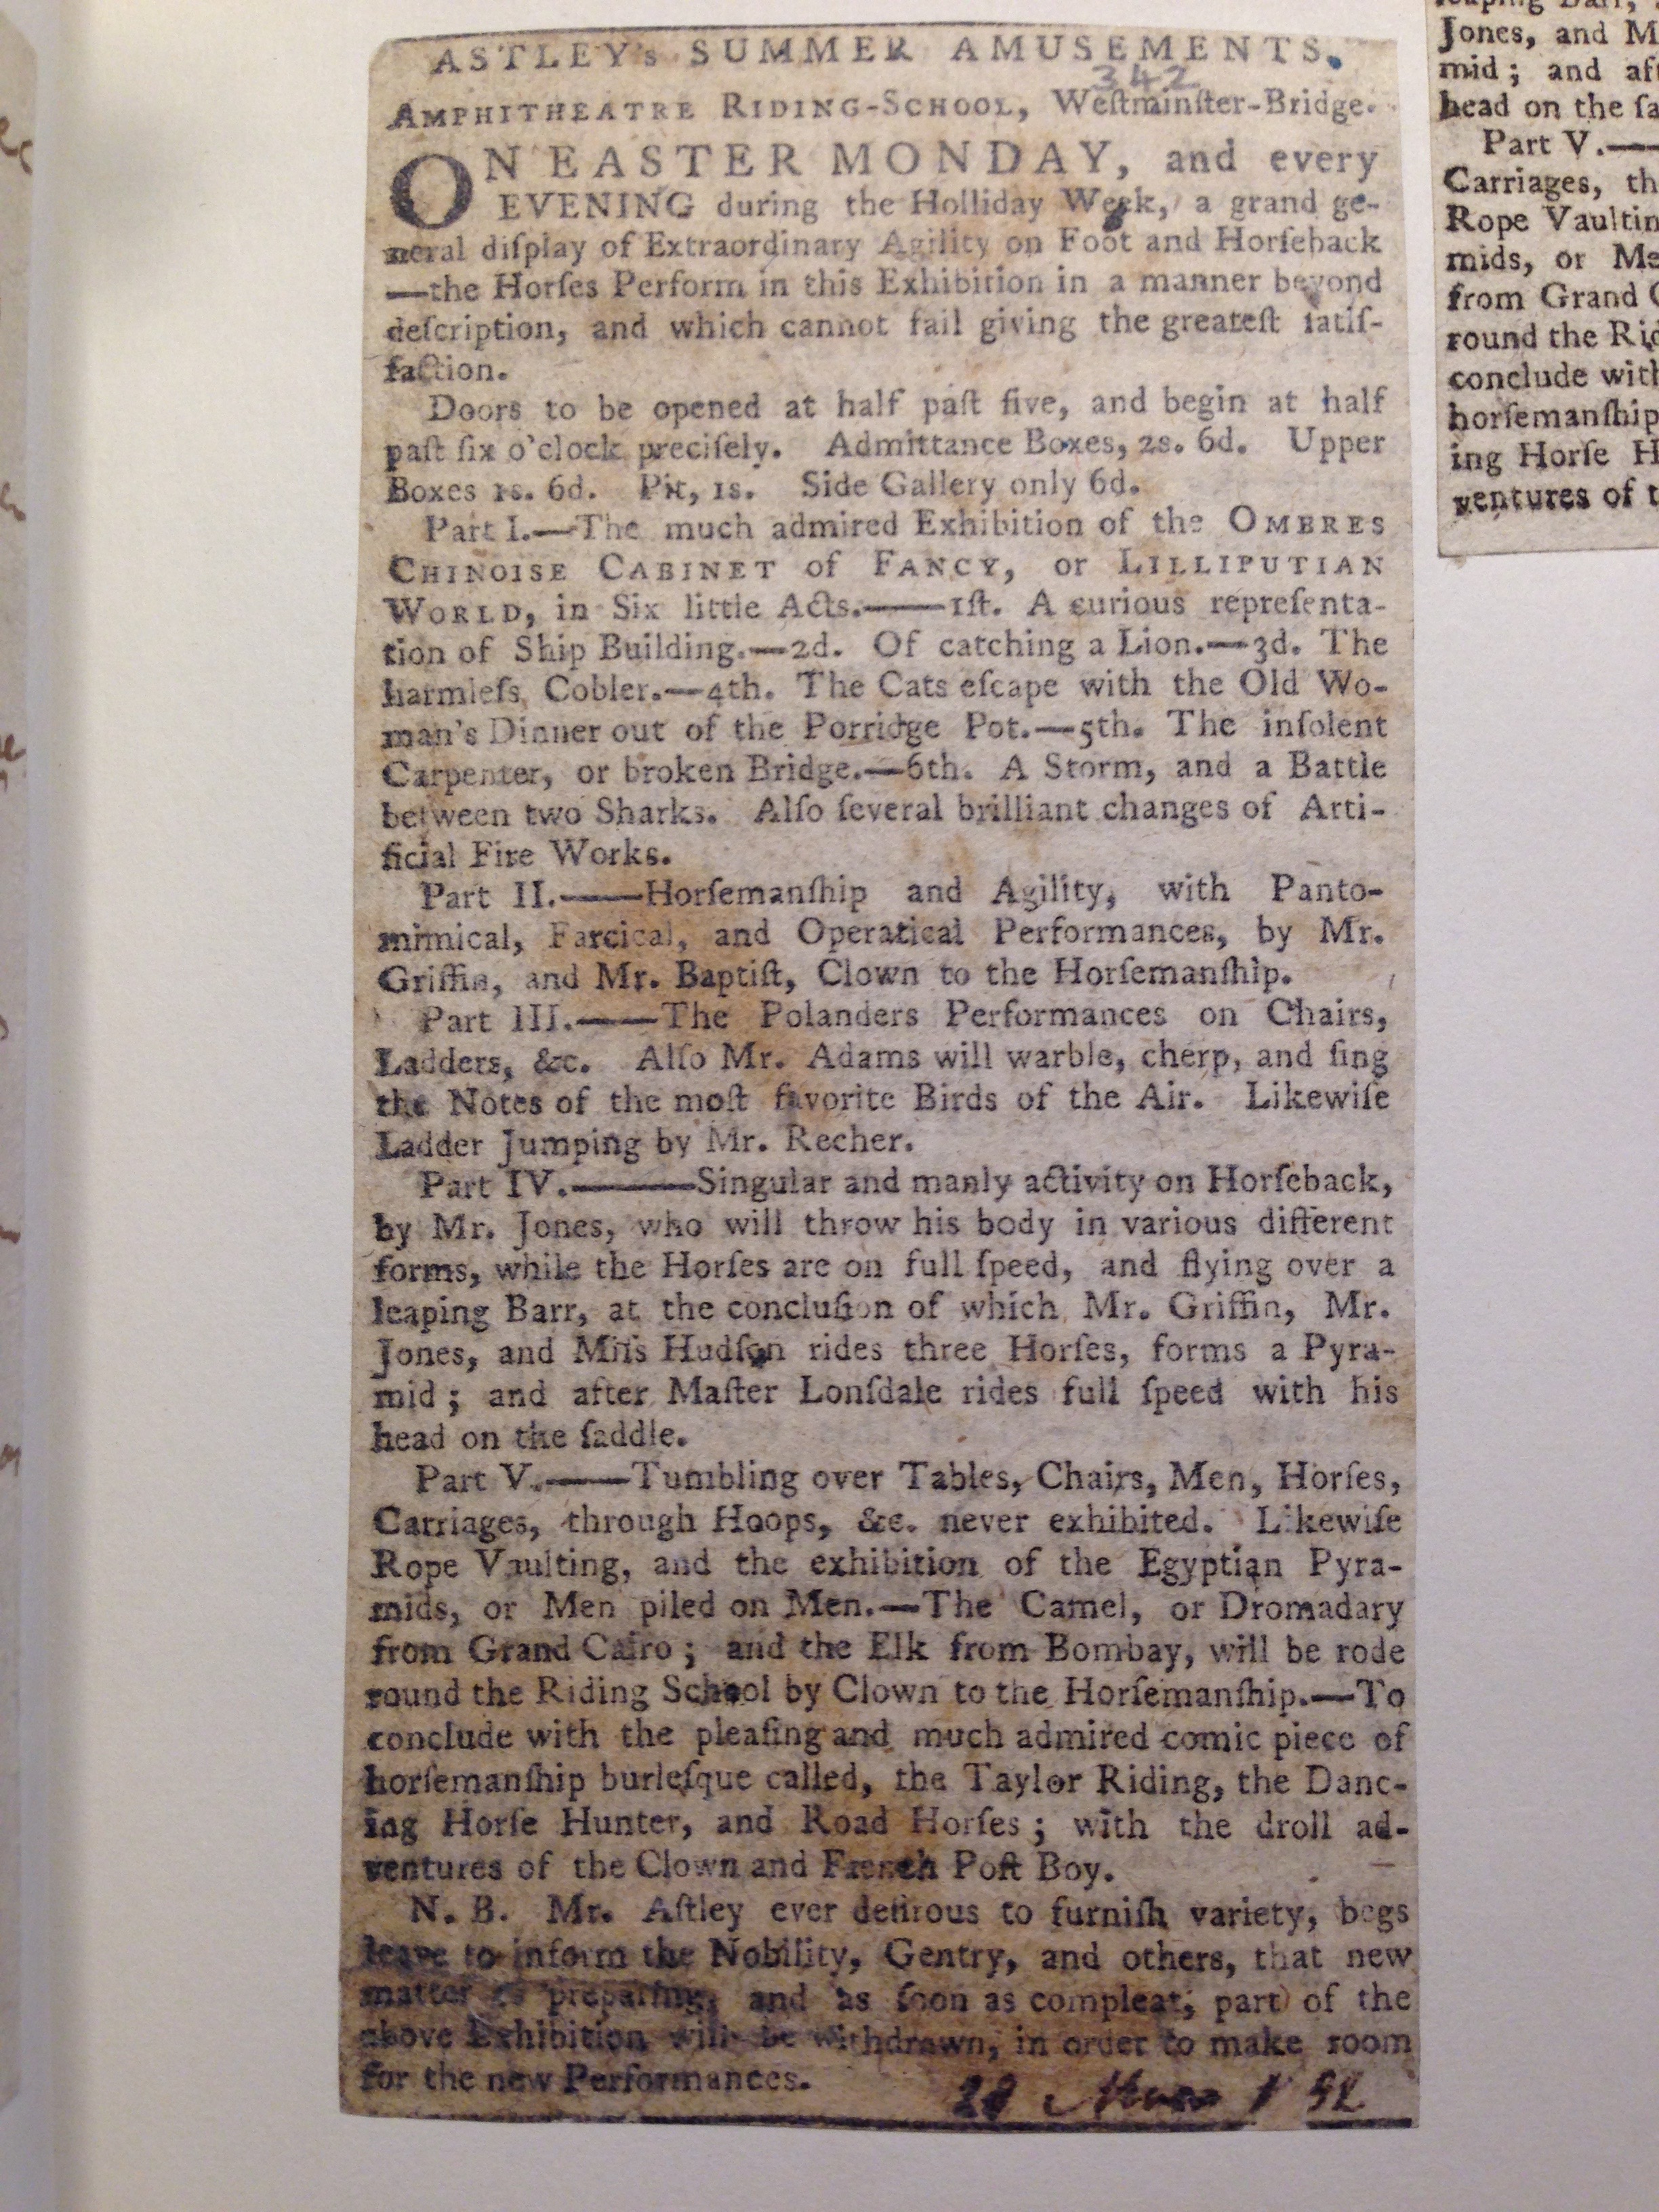 ASTLEY's SUMMER AMUSEMENTS.
342
AMPHITHEATRE RIDING-SCHOOL, Weſtminſter-Bridge.
ON EASTER MONDAY, and every
EVENING during the Holliday Week, a grand ge-
neral diſplay of Extraordinary Agility on Foot and Horſeback
—the Horſes Perform in this Exhibition in a manner beyond
deſcription, and which cannot fail giving the greateſt ſatiſ-
faction.
Doors to be opened at half paſt five, and begin at half
paſt ſix o'clock preciſely. Admittance Boxes, 2s. 6d. Upper
Boxes 1s. 6d. Pit, 1s. Side Gallery only 6d.
Part I.—The much admired Exhibition of the OMBRES
CHINOISE CABINET of FANCY, or LILLIPUTIAN
WORLD, in Six little Acts.——1ſt. A curious repreſenta-
tion of Ship Building.—2d. Of catching a Lion.—3d. The
harmleſs Cobler.—4th. The Cats eſcape with the Old Wo-
man's Dinner out of the Porridge Pot.—5th. The inſolent
Carpenter, or broken Bridge.—6th. A Storm, and a Battle
between two Sharks. Alſo ſeveral brilliant changes of Arti-
ficial Fire Works.
Part II.——Horſemanſhip and Agility, with Panto-
mimical, Farcical, and Operatical Performances, by Mr.
Griffin, and Mr. Baptiſt, Clown to the Horſemanſhip.
Part III.——The Polanders Performances on Chairs,
Ladders, &c. Alſo Mr. Adams will warble, cherp, and ſing
the Notes of the moſt favorite Birds of the Air. Likewiſe
Ladder Jumping by Mr. Recher.
Part IV.———Singular and manly activity on Horſeback,
by Mr. Jones, who will throw his body in various different
forms, while the Horſes are on full ſpeed, and flying over a
leaping Barr, at the concluſion of which Mr. Griffin, Mr.
Jones, and Miſs Hudſon rides three Horſes, forms a Pyra-
mid; and after Maſter Lonſdale rides full ſpeed with his
head on the ſaddle.
Part V.——Tumbling over Tables, Chairs, Men, Horſes,
Carriages, through Hoops, &c. never exhibited. Likewiſe
Rope Vaulting, and the exhibition of the Egyptian Pyra-
mids, or Men piled on Men.—The Camel, or Dromadary
from Grand Cairo; and the Elk from Bombay, will be rode
round the Riding School by Clown to the Horſemanſhip.—To
conclude with the pleaſing and much admired comic piece of
horſemanſhip burleſque called, the Taylor Riding, the Danc-
ing Horſe Hunter, and Road Horſes; with the droll ad-
ventures of the Clown and French Poſt Boy.
N. B. Mr. Aſtley ever deſirous to furniſh variety, begs
leave to inform the Nobility, Gentry, and others, that new
matter is preparing, and as ſoon as compleat, part of the
above Exhibition will be withdrawn, in order to make room
for the new Performances.
Jones, and M
mid; and aft
head on the ſa
Part V.—
Carriages, th
Rope Vaultin
mids, or Me
from Grand C
round the Rid
conclude with
horſemanſhip
ing Horſe H
ventures of t